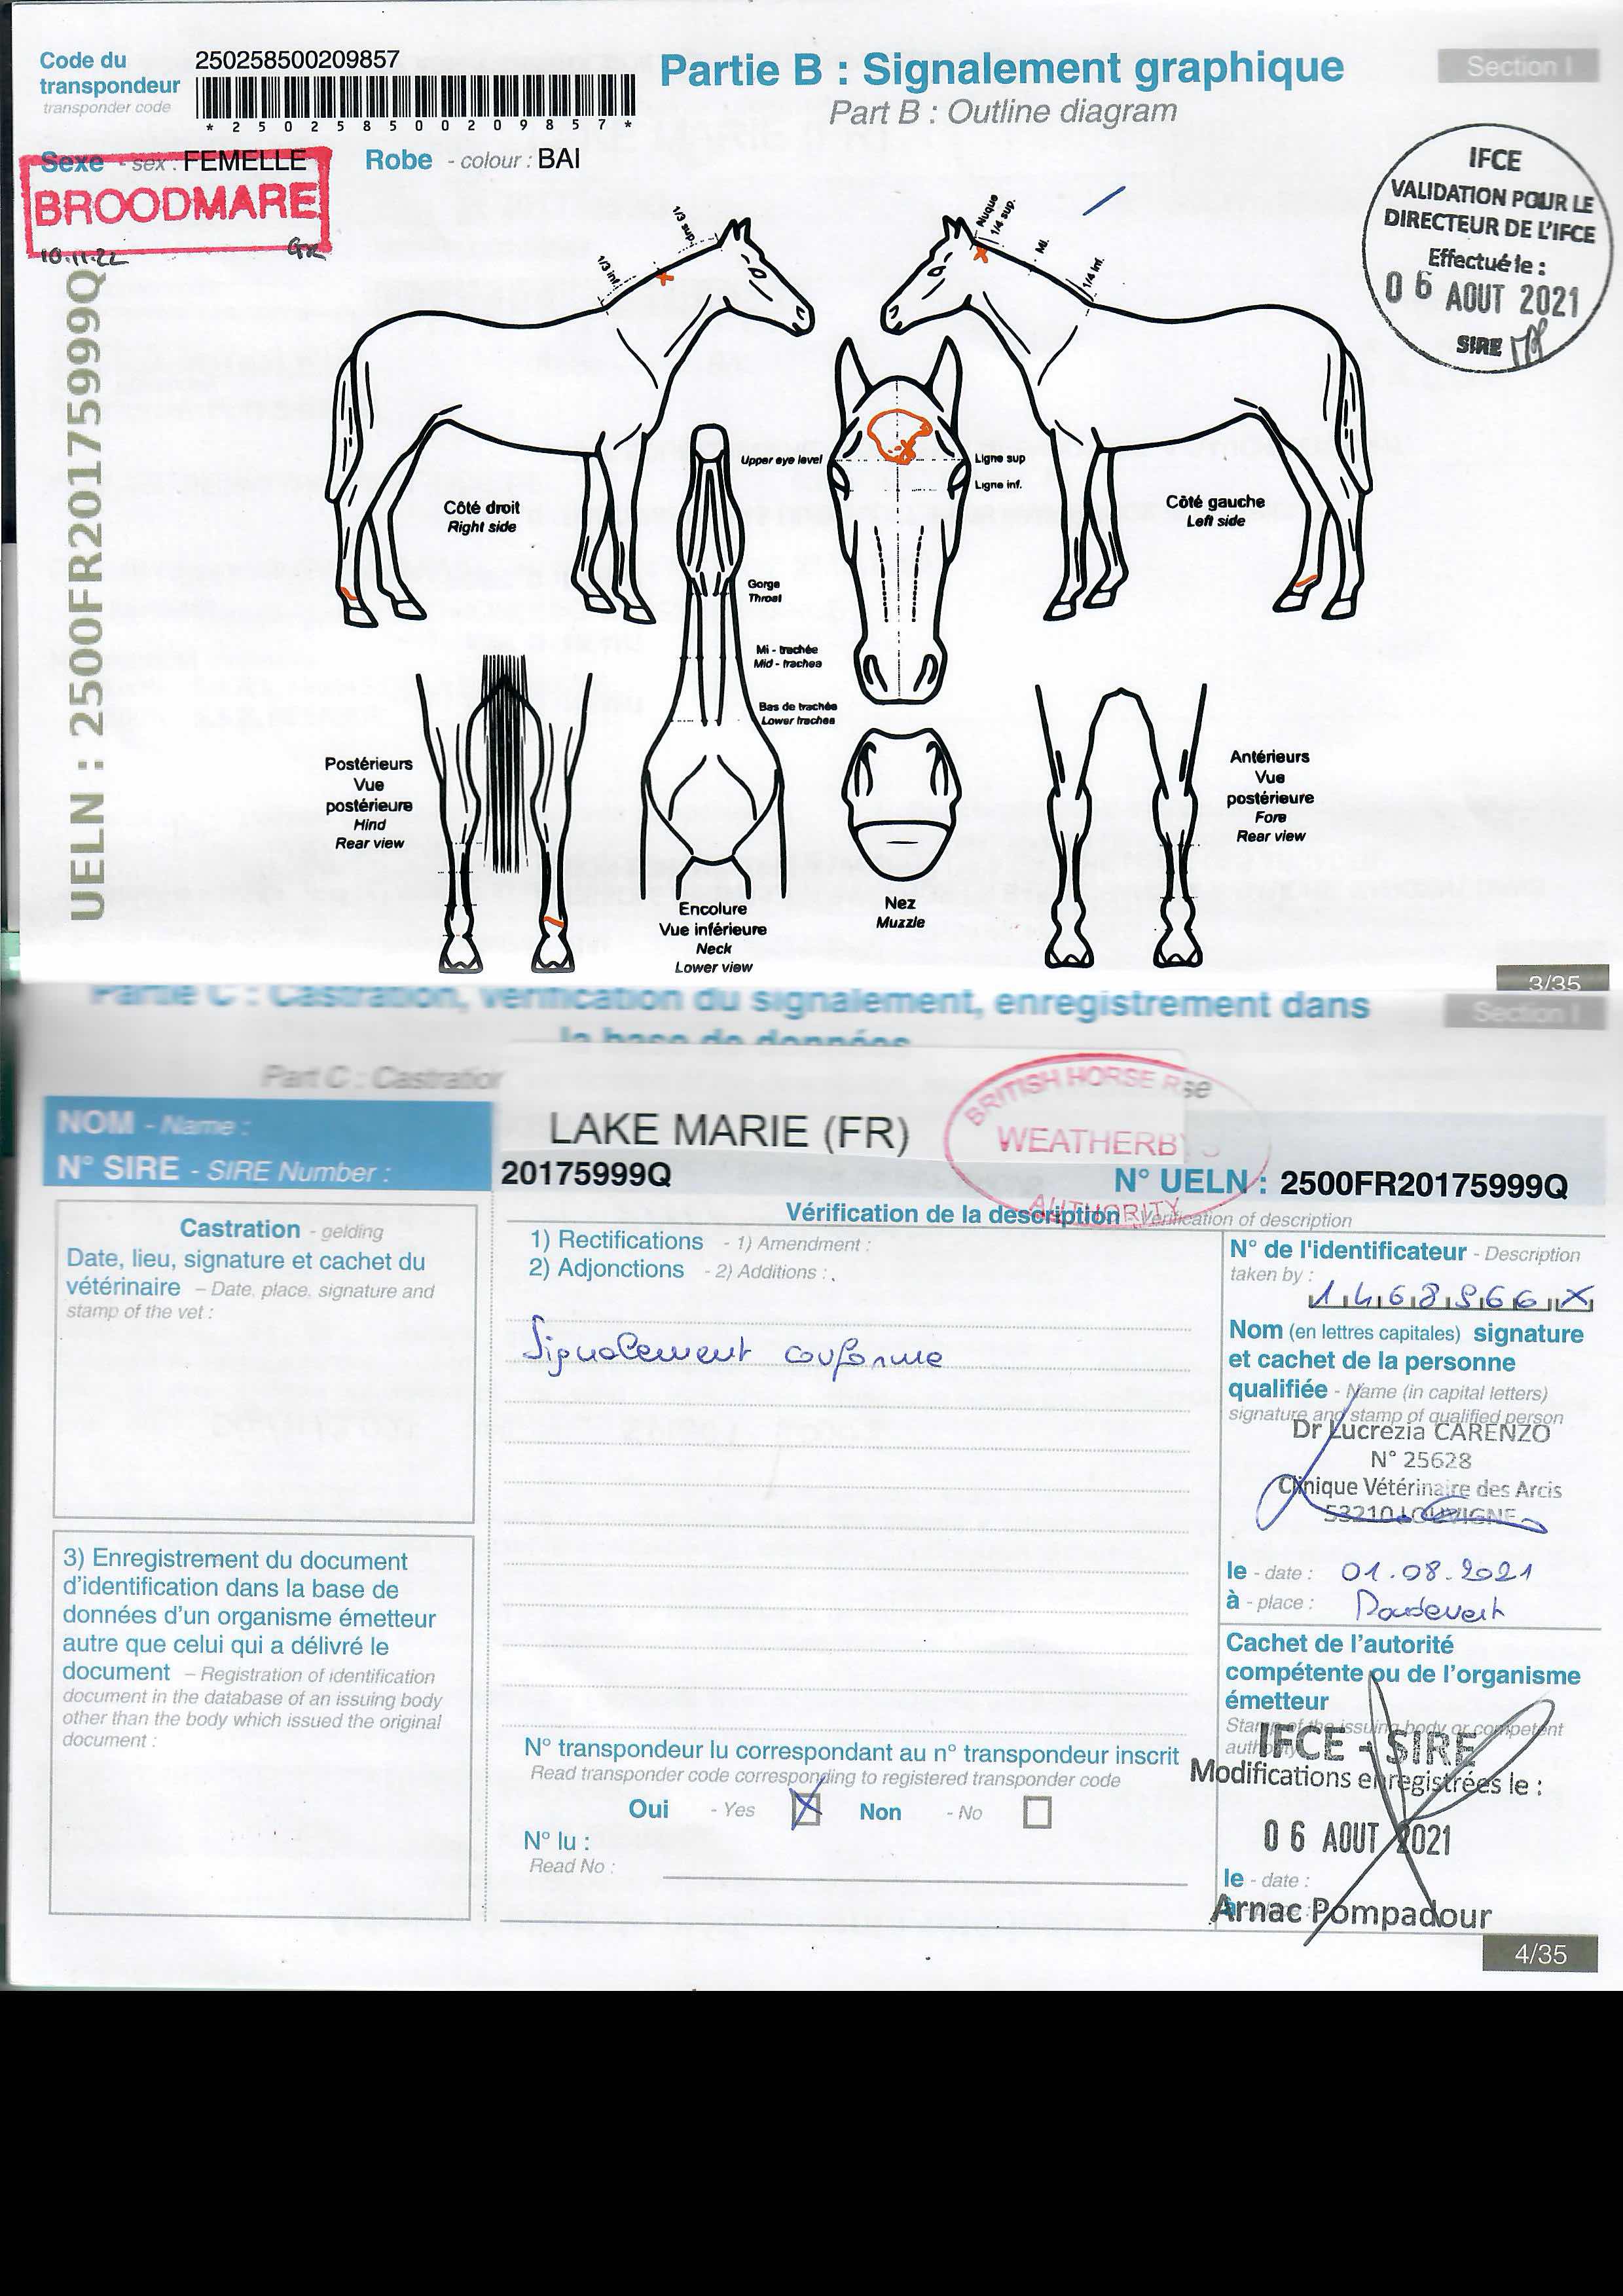 Code du
transpondeur
transponder code
250258500209857
*250258500209857*
Partie B : Signalement graphique
Part B : Outline diagram
Section I
Sexe - sex : FEMELLE
Robe - colour : BAI
BROODMARE
10.11.22
IFCE
VALIDATION POUR LE
DIRECTEUR DE L'IFCE
Effectué le :
06 AOUT 2021
SIRE
UELN : 2500FR20175999Q
1/3 sup.
1/3 inf.
Nuque
1/4 sup.
Mi.
1/4 inf.
Upper eye level
Ligne sup
Ligne inf.
Côté droit
Right side
Côté gauche
Left side
Gorge
Throat
Mi - trachée
Mid - trachea
Bas de trachée
Lower trachea
Postérieurs
Vue
postérieure
Hind
Rear view
Encolure
Vue inférieure
Neck
Lower view
Nez
Muzzle
Antérieurs
Vue
postérieure
Fore
Rear view
3/35
Partie C : Castration, vérification du signalement, enregistrement dans
la base de données
Section I
Part C : Castration
NOM - Name :
LAKE MARIE (FR)
BRITISH HORSE
WEATHERBYS
AUTHORITY
N° SIRE - SIRE Number :
20175999Q
N° UELN : 2500FR20175999Q
Castration - gelding
Date, lieu, signature et cachet du
vétérinaire – Date, place, signature and
stamp of the vet :
Vérification de la description - Verification of description
1) Rectifications - 1) Amendment :
2) Adjonctions - 2) Additions :
Signalement conforme
N° de l'identificateur - Description
taken by :
Nom (en lettres capitales) signature
et cachet de la personne
qualifiée - Name (in capital letters)
signature and stamp of qualified person
Dr Lucrezia CARENZO
N° 25628
Clinique Vétérinaire des Arcis
53210 LOUVIGNE
le - date : 01.08.2021
à - place :
3) Enregistrement du document
d'identification dans la base de
données d'un organisme émetteur
autre que celui qui a délivré le
document – Registration of identification
document in the database of an issuing body
other than the body which issued the original
document :
Cachet de l'autorité
compétente ou de l'organisme
émetteur
Stamp of the issuing body or competent
authority
IFCE - SIRE
Modifications enregistrées le :
06 AOUT 2021
le - date :
Arnac Pompadour
N° transpondeur lu correspondant au n° transpondeur inscrit
Read transponder code corresponding to registered transponder code
Oui - Yes
Non - No
N° lu :
Read No :
4/35